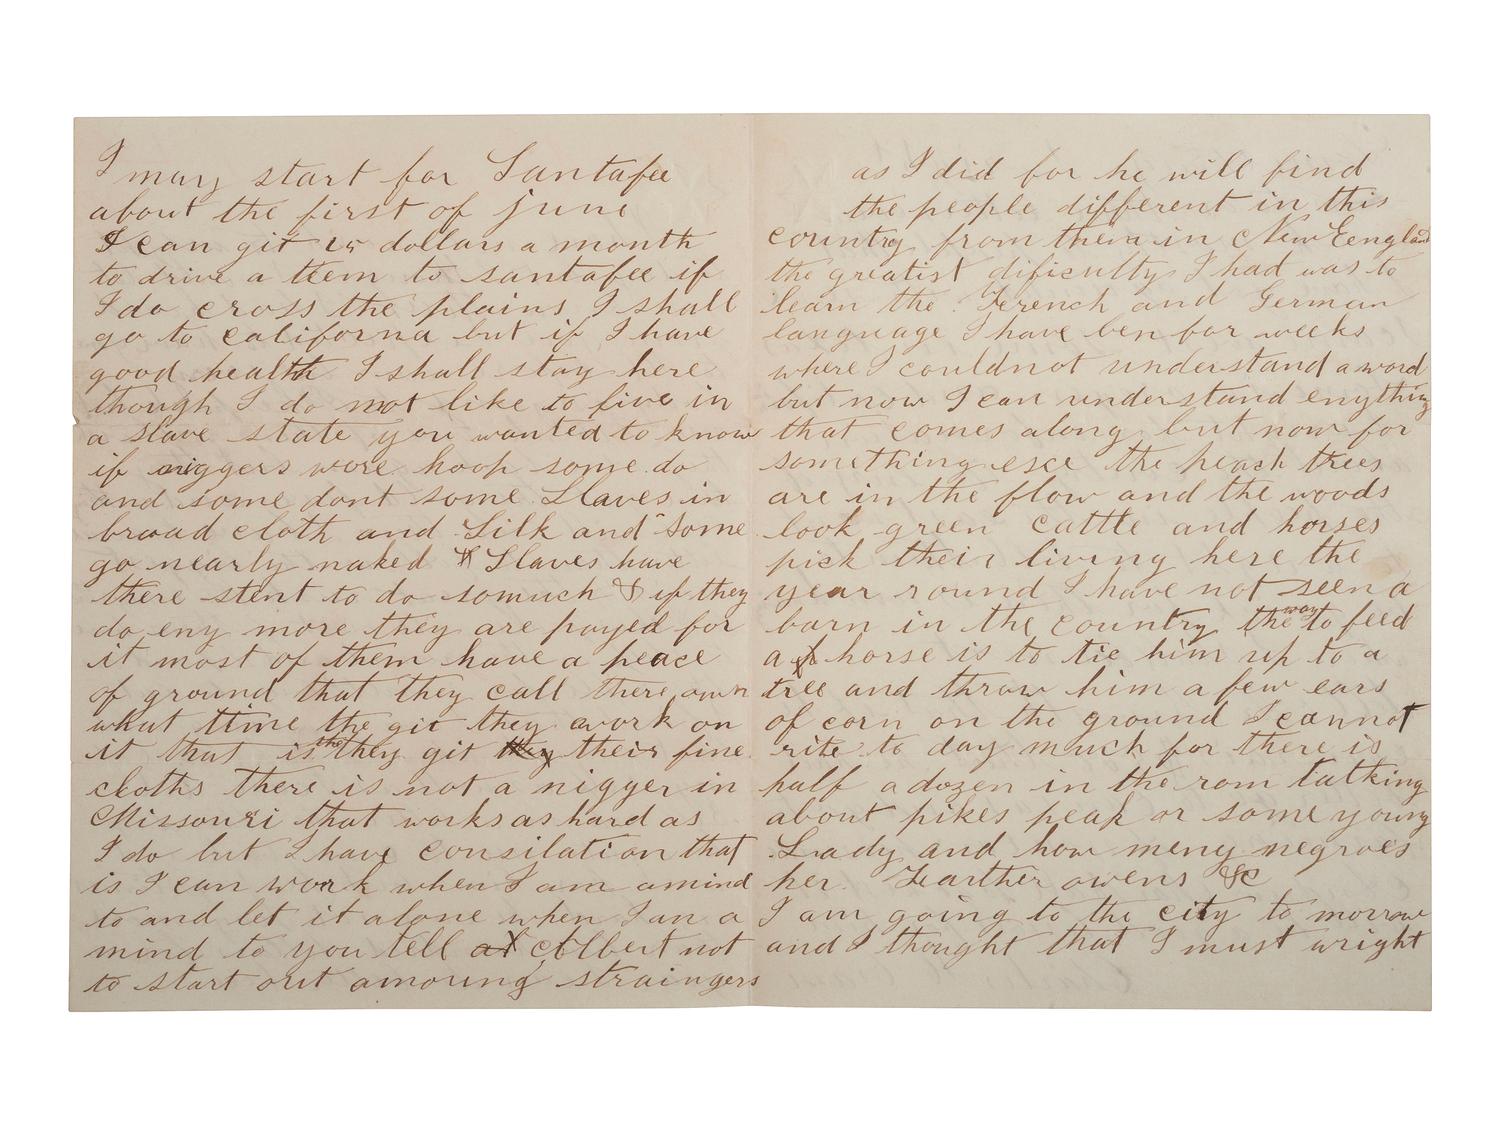 I may start for Santafee
about the first of june
I can git 15 dollars a month
to drive a teem to santafee if
I do cross the plains I shall
go to californa but if I have
good health I shall stay here
though I do not like to live in
a slave state you wanted to know
if niggers wore hoop some do
and some dont some Slaves in
broad cloth and Silk and some
go nearly naked Slaves have
there stent to do somuch & if they
do eny more they are payed for
it most of them have a peace
of ground that they call there own
what time the git they work on
it that is the they git they their fine
cloths there is not a nigger in
Missouri that works as hard as
I do but I have consilation that
is I can work when I am amind
to and let it alone when I an a
mind to you tell Albert not
to start out amoung straingers
as I did for he will find
the people different in this
country from them in New Eengland
the greatist dificulty I had was to
learn the French and German
language I have ben for weeks
where I couldnot understand a word
but now I can understand enything
that comes along but now for
something esce the peach trees
are in the flow and the woods
look green cattle and horses
pick their living here the
year round I have not seen a
barn in the country the way to feed
a horse is to tie him up to a
tree and throw him a few ears
of corn on the ground I cannot
rite to day much for there is
half a dozen in the rom talking
about pikes peak or some young
Lady and how meny negroes
her Farther owens &c
I am going to the city to morrow
and I thought that I must wright